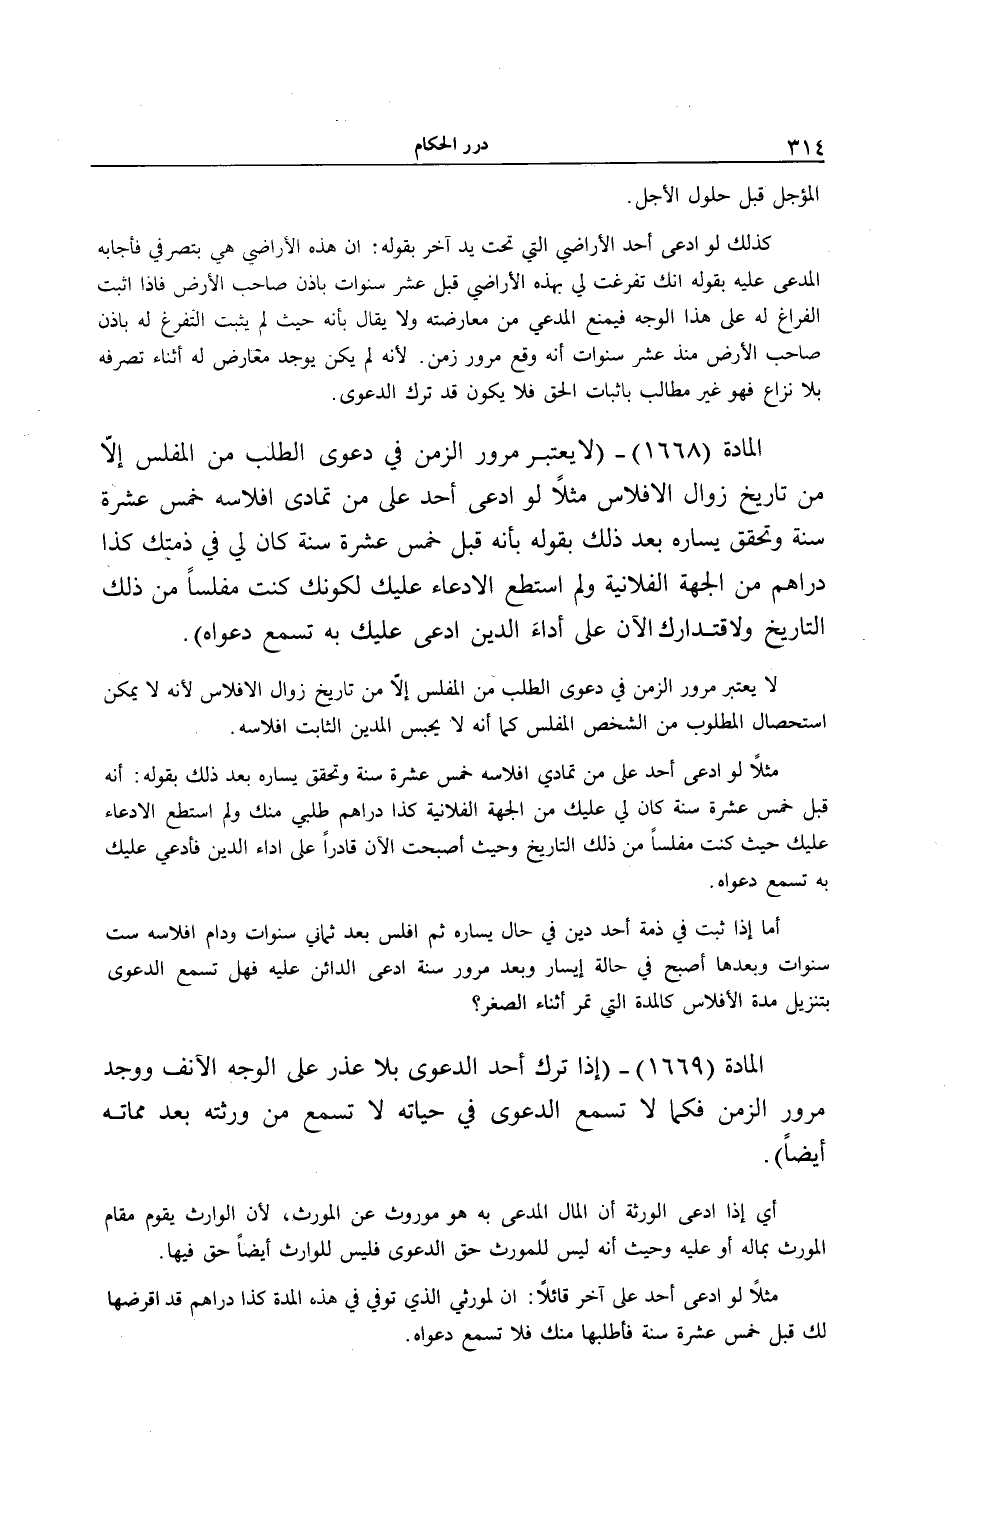 ٣١٤
درر الحكام
المؤجل قبل حلول الأجل.
كذلك لو ادعى أحد الأراضي التي تحت يد آخر بقوله: ان هذه الأراضي هي بتصرفي فأجابه
المدعى عليه بقوله انك تفرغت لي بهذه الأراضي قبل عشر سنوات باذن صاحب الأرض فاذا اثبت
الفراغ له على هذا الوجه فيمنع المدعي من معارضته ولا يقال بأنه حيث لم يثبت التفرغ له باذن
صاحب الأرض منذ عشر سنوات أنه وقع مرور زمن. لأنه لم يكن يوجد معارض له أثناء تصرفه
بلا نزاع فهو غير مطالب باثبات الحق فلا يكون قد ترك الدعوى.
المادة (١٦٦٨) - (لا يعتبر مرور الزمن في دعوى الطلب من المفلس إلاّ
من تاريخ زوال الافلاس مثلاً لو ادعى أحد على من تمادى افلاسه خمس عشرة
سنة وتحقق يساره بعد ذلك بقوله بأنه قبل خمس عشرة سنة كان لي في ذمتك كذا
دراهم من الجهة الفلانية ولم استطع الادعاء عليك لكونك كنت مفلساً من ذلك
التاريخ ولاقتدارك الآن على أداء الدين ادعى عليك به تسمع دعواه).
لا يعتبر مرور الزمن في دعوى الطلب من المفلس إلاّ من تاريخ زوال الافلاس لأنه لا يمكن
استحصال المطلوب من الشخص المفلس كما أنه لا يحبس المدين الثابت افلاسه.
مثلاً لو ادعى أحد على من تمادي افلاسه خمس عشرة سنة وتحقق يساره بعد ذلك بقوله: أنه
قبل خمس عشرة سنة كان لي عليك من الجهة الفلانية كذا دراهم طلبي منك ولم استطع الادعاء
عليك حيث كنت مفلساً من ذلك التاريخ وحيث أصبحت الآن قادراً على اداء الدين فأدعي عليك
به تسمع دعواه.
أما إذا ثبت في ذمة أحد دين في حال يساره ثم افلس بعد ثماني سنوات ودام افلاسه ست
سنوات وبعدها أصبح في حالة إيسار وبعد مرور سنة ادعى الدائن عليه فهل تسمع الدعوى
بتنزيل مدة الأفلاس كالمدة التي تمر أثناء الصغر؟
المادة (١٦٦٩) - (إذا ترك أحد الدعوى بلا عذر على الوجه الآنف ووجد
مرور الزمن فكما لا تسمع الدعوى في حياته لا تسمع من ورثته بعد مماته
أيضاً).
أي إذا ادعى الورثة أن المال المدعى به هو موروث عن المورث، لأن الوارث يقوم مقام
المورث بماله أو عليه وحيث أنه ليس للمورث حق الدعوى فليس للوارث أيضاً حق فيها.
مثلاً لو ادعى أحد على آخر قائلاً: ان لمورثي الذي توفي في هذه المدة كذا دراهم قد اقرضها
لك قبل خمس عشرة سنة فأطلبها منك فلا تسمع دعواه.